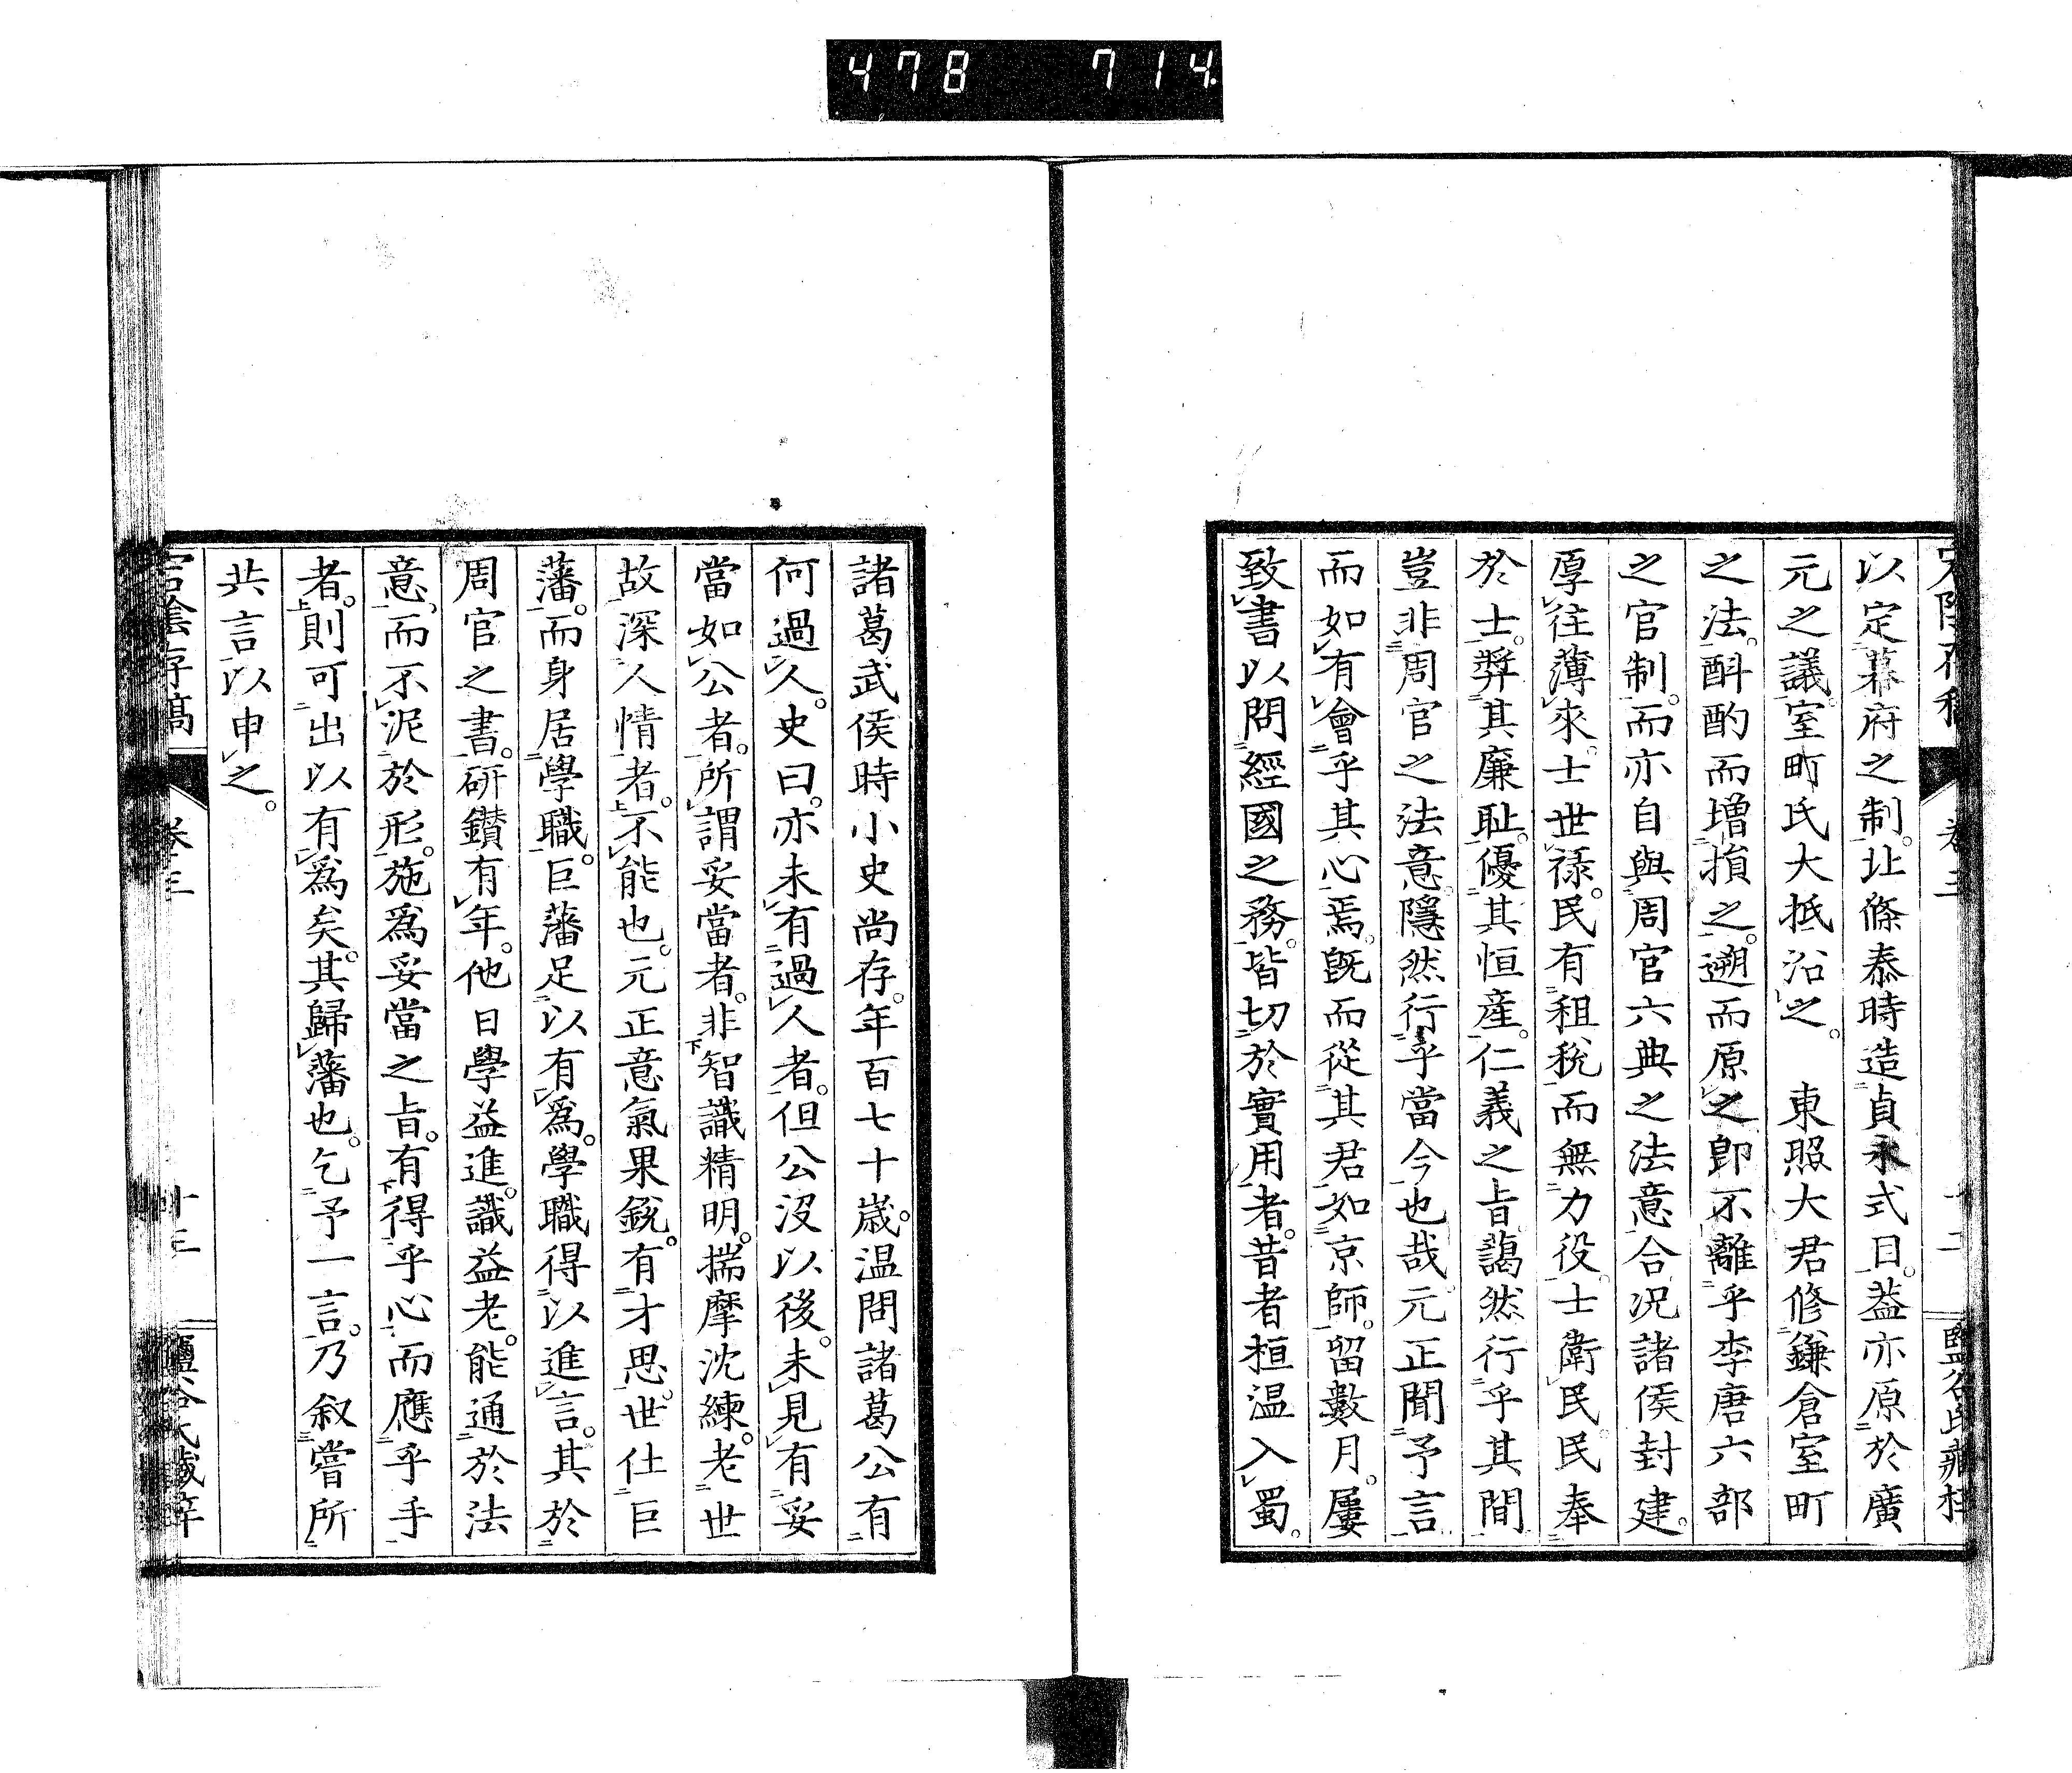 478 714
以定幕府之制。北條泰時造貞永式目。蓋亦原於廣
元之議。室町氏大抵沿之。 東照大君修鎌倉室町
之法。斟酌而増損之。遡而原之卽不離乎李唐六部
之官制。而亦自與周官六典之法意合況諸侯封建。
厚往薄來。士世祿。民有租稅而無力役。士衛民。民奉
於士。奬其廉耻。優其恒産。仁義之旨藹然行乎其間
豈非周官之法意。隱然行乎當今也哉元正聞予言
而如有會乎其心焉。旣而從其君如京師。留數月。屢
致書以問經國之務。皆切於實用者。昔者桓温入蜀。
諸葛武侯時小史尚存。年百七十歲。温問諸葛公有
何過人。史曰。亦未有過人者。但公沒以後。未見有妥
當如公者。所謂妥當者。非智識精明。揣摩沈練。老世
故深人情者。不能也。元正意氣果銳。有才思。世仕巨
藩。而身居學職。巨藩足以有爲。學職得以進言。其於
周官之書。研鑚有年。他日學益進。識益老。能通於法
意。而不泥於形。施爲妥當之旨。有得乎心而應乎手
者。則可出以有爲矣。其歸藩也。乞予一言。乃叙嘗所
共言以申之。
宕陰存稿 卷三 十三 鹽谷氏藏梓